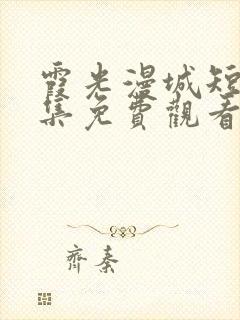 霞光漫城短
集免費觀看
齊秦